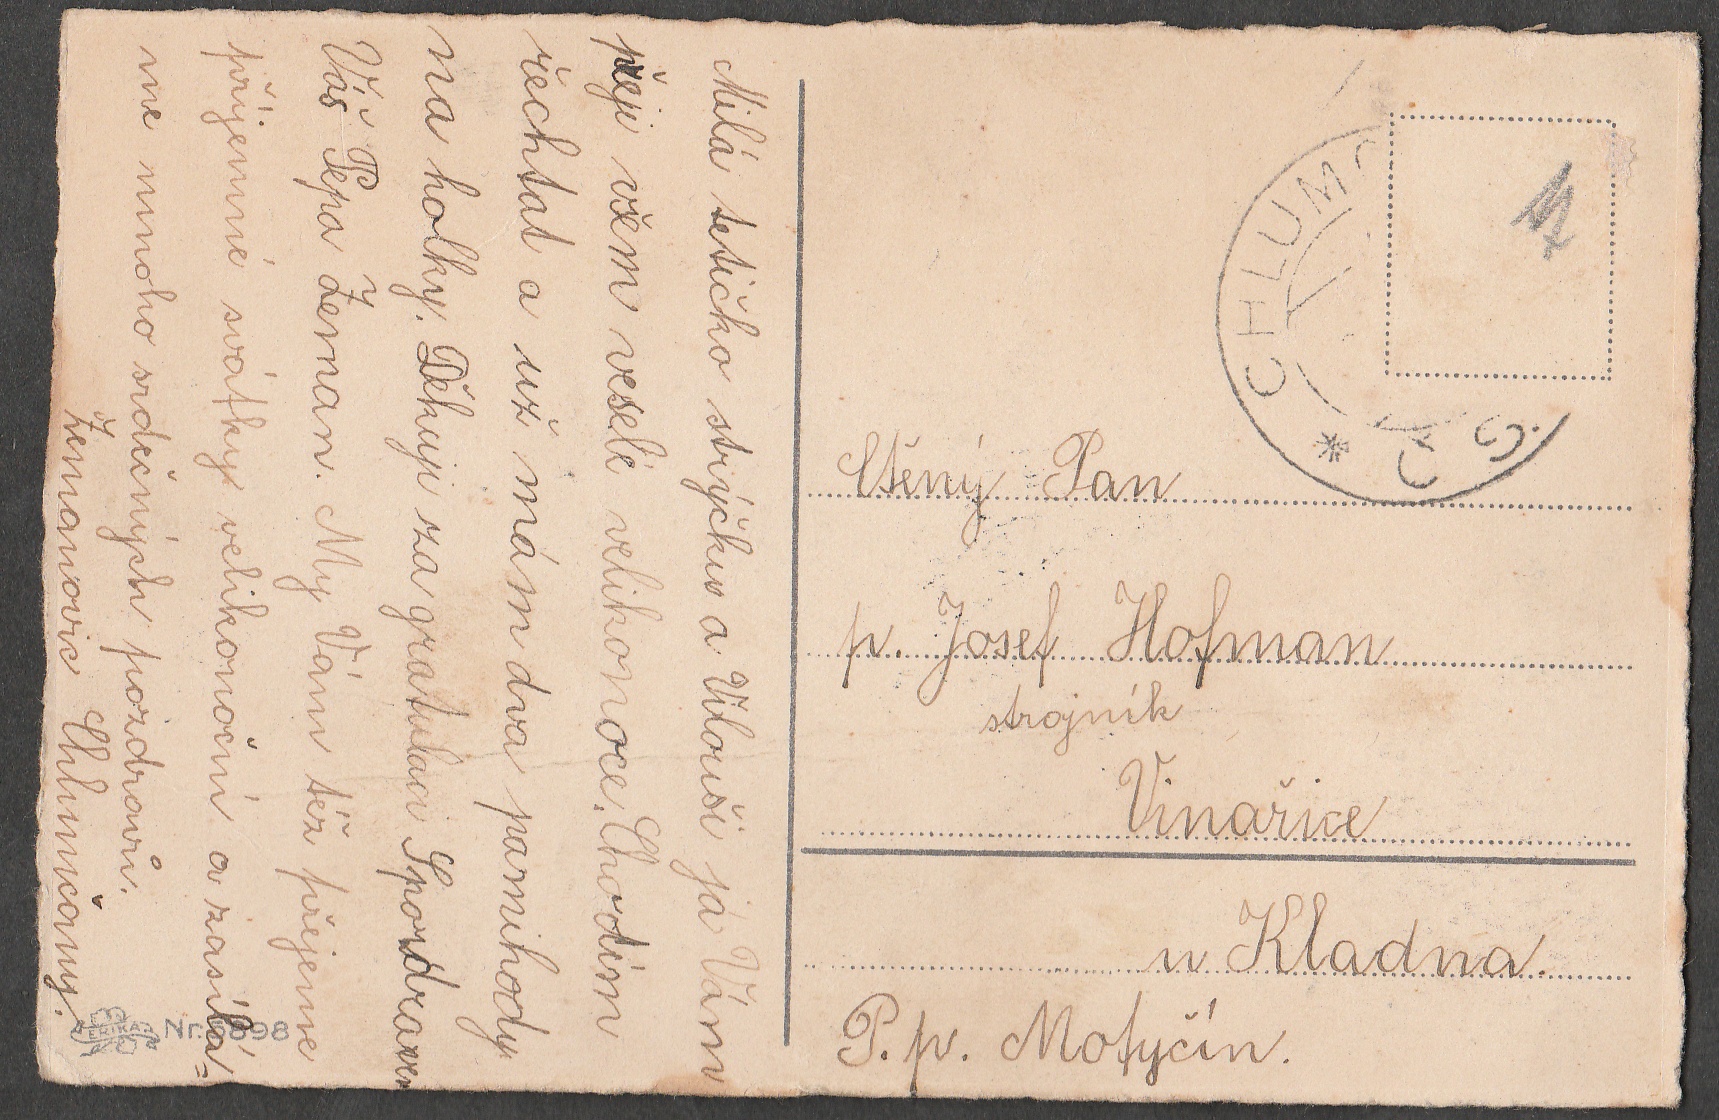 Milá tetičko strýčku a Vlouši já Vám
přeji všem veselé velikonoce. Chodím
řechtat a už mám dva pamihody
na holky. Děkuji za gratulaci Spozdravem
Váš Pepa Žeman. My Vám též přejeme
příjemné svátky velikonoční a zasílá-
me mnoho srdečných pozdravů.
Žemanovic Chlumčany.
ERIKA Nr. 5898
CHLUMČ
*
Ctěný Pan
p. Josef Hofman
strojník
Vinařice
u Kladna.
P. p. Motyčín.